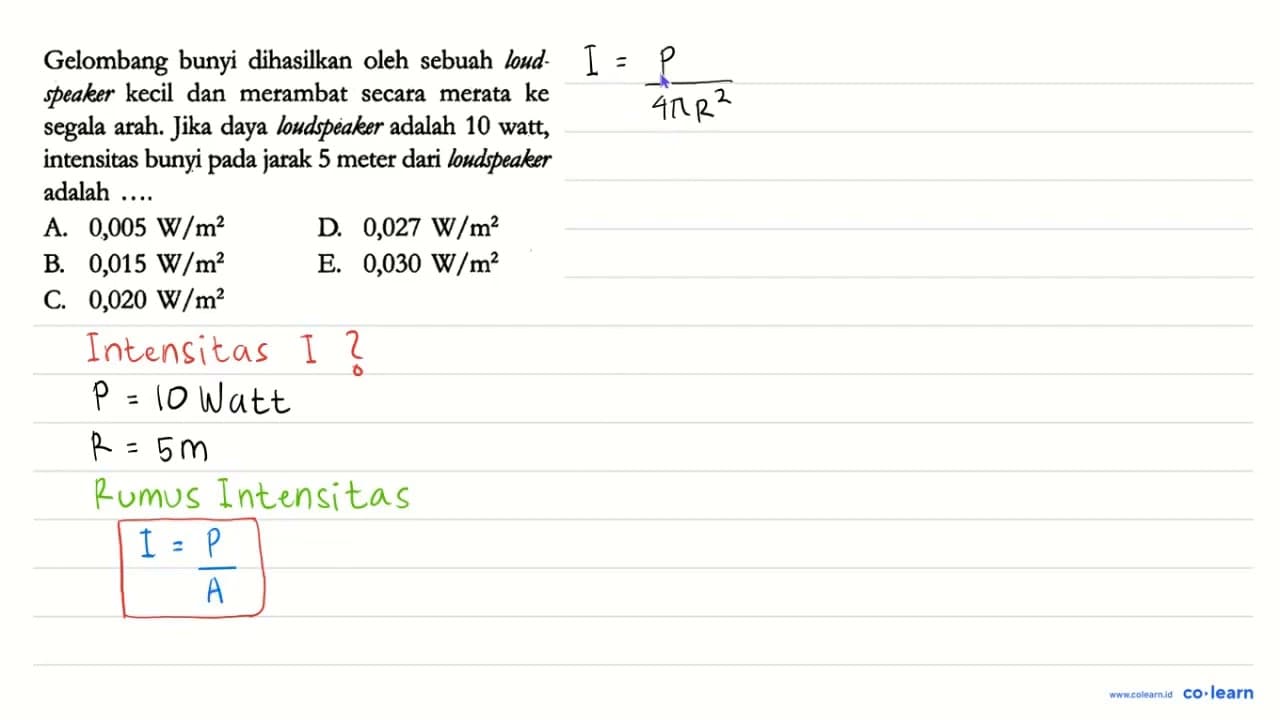 Gelombang bunyi dihasilkan oleh sebuah loud-
speaker kecil dan merambat secara merata ke
segala arah. Jika daya loudspeaker adalah 10 watt,
intensitas bunyi pada jarak 5 meter dari loudspeaker
adalah ....
A. 0,005 W/m² D. 0,027 W/m²
B. 0,015 W/m² E. 0,030 W/m²
C. 0,020 W/m²
I = P
4πR²
Intensitas I ?
P = 10 Watt
R = 5m
Rumus Intensitas
I = P
A
www.colearn.id co·learn